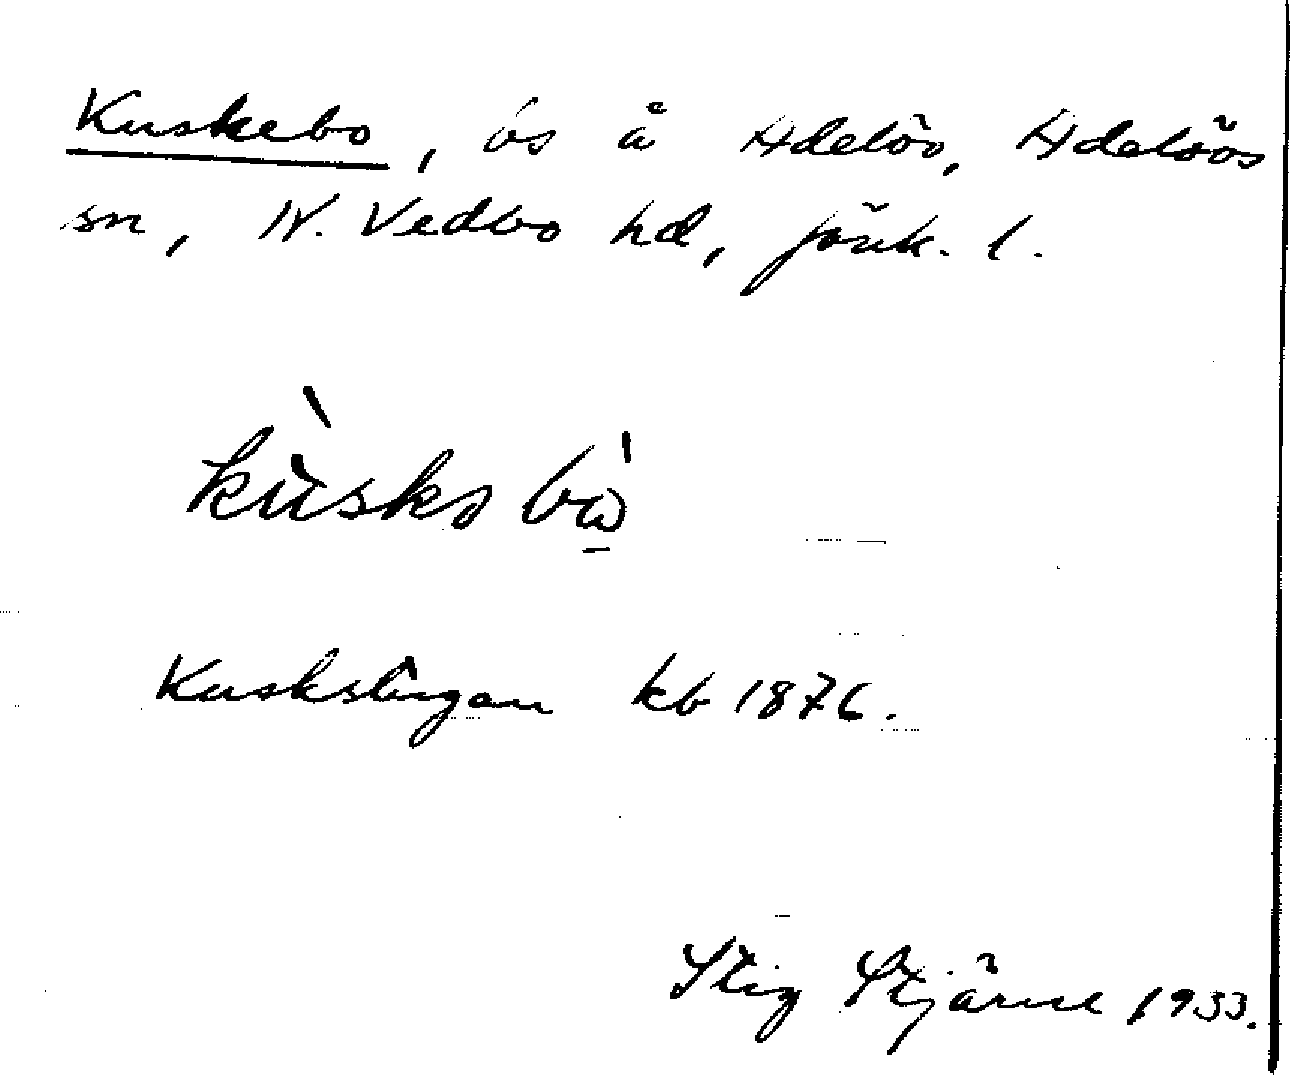 Kuskebo, bs å Adelöv, Adelövs
sn, N. Vedbo hd, Jönk. l.
kùskə bò
Kuskstugan kb 1876.
Stig Stjärne 1933.